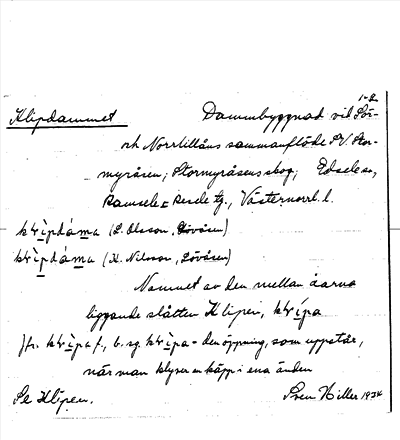 1-2
Klipdammet Dammbyggnad vid Sör-
och Norrtillåns sammanflöde SV. Stor-
myråsen; Stormyråsens skog; Edsele sn,
Ramsele o Resele tg., Västernorrl. l.
(L. Olsson, Lövåsen)
(K. Nilsson, Lövåsen)
Namnet av den mellan åarna
liggande slåtten Klipen,
Jfr. f., b. sg. = den öppning, som uppstår,
när man klyver en käpp i ena änden
Se Klipen. Sven Hiller 1934